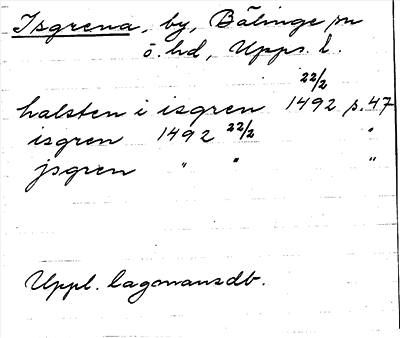 Isgrena, by, Bälinge sn
ö. hd, Upps. l.
halsten i isgren 22/2 1492 p. 47
isgren 1492 22/2 "
jsgren " " "
Uppl. lagmansdb.